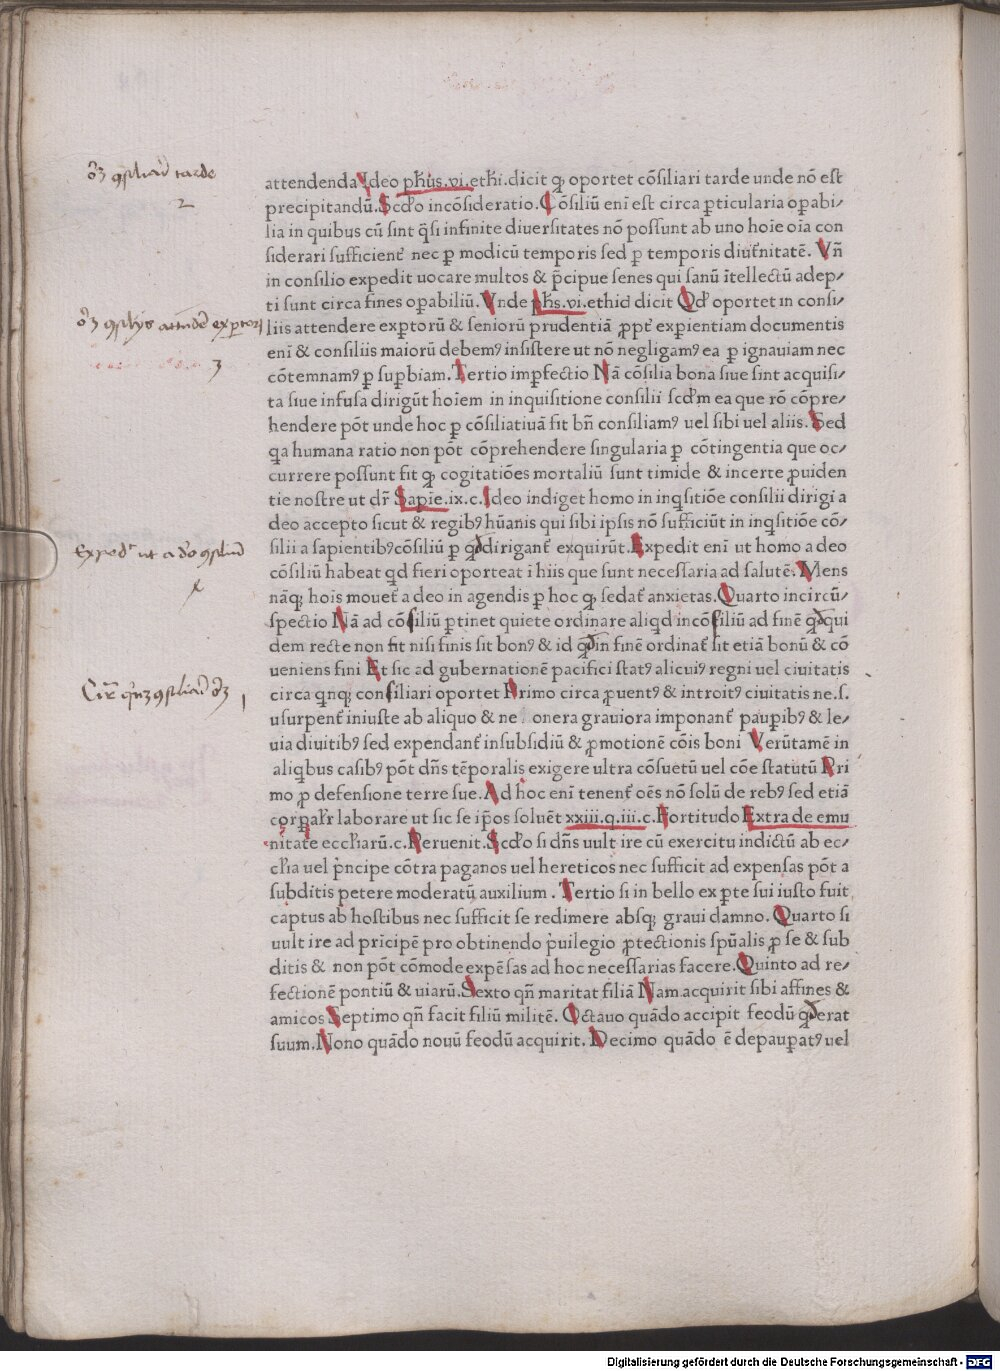 attendenda Ideo pħus.vi.etħi.dicit ꝙ oportet cōsiliari tarde unde nō est
precipitandū.Scđo incōsideratio.Cōsiliū eni est circa ꝑticularia oꝑabi⸗
lia in quibus cū sint q̄si infinite diuersitates nō possunt ab uno hoīe oīa con
siderari sufficient̉ nec ꝑ modicū temporis sed ꝑ temporis diut̉nitatē. Vñ
in consilio expedit uocare multos & p̄cipue senes qui sanū ītellectū adep⸗
ti sunt circa fines oꝑabiliū. Vnde pħs.vi.ethicꝭ dicit Qđ oportet in consi⸗
liis attendere exꝑtorū & seniorū prudentiā ꝓpt̉ exꝑientiam documentis
enī & consiliis maiorū debemꝰ insistere ut nō negligamꝰ ea ꝑ ignauiam nec
cōtemnamꝰ ꝑ suꝑbiam. Tertio imꝑfectio Nā cōsilia bona siue sint acquisi⸗
ta siue infusa dirigūt hoīem in inquisitione consilii scđm ea que rō cōpre⸗
hendere pōt unde hoc ꝑ cōsiliatiuā fit bn̄ consiliamꝰ uel sibi uel aliis. Sed
qa humana ratio non pōt cōprehendere singularia ꝑ cōtingentia que oc⸗
currere possunt fit ꝙ cogitatiōes mortaliū sunt timide & incerte ꝓuiden
tie nostre ut dr̄ Sapīe.ix.c.Ideo indiget homo in inqsitiōe consilii dirigi a
deo accepto sicut & regibꝰ hūanis qui sibi ipsis nō sufficiūt in inqsitiōe cō⸗
silii a sapientibꝰ cōsiliū ꝑ qđ dirigant̉ exquirūt. Expedit enī ut homo a deo
cōsiliū habeat qd fieri oporteat ī hiis que sunt necessaria ad salutē. Mens
nāqꝫ hoīs mouet̉ a deo in agendis ꝑ hoc ꝙ sedat̉ anxietas. Quarto incircū⸗
spectio Nā ad cōsiliū ꝑtinet quiete ordinare aliqd incōsiliū ad finē qđ qui
dem recte non fit nisi finis sit bonꝰ & id qđ in finē ordinat̉ sit etiā bonū & cō
ueniens fini Et sic ad gubernationē pacifici statꝰ alicuiꝰ regni uel ciuitatis
circa qnqꝫ consiliari oportet Primo circa ꝓuentꝰ & introitꝰ ciuitatis ne.s.
usurpent̉ iniuste ab aliquo & ne onera grauiora imponant̉ pauꝑibꝰ & le⸗
uia diuitibꝰ sed expendant̉ insubsidiū & ꝓmotionē cōis boni Verūtamē in
aliqbus casibꝰ pōt dn̄s tēporalis exigere ultra cōsuetū uel cōe statutū Pri
mo ꝓ defensione terre sue. Ad hoc enī tenent̉ oēs nō solū de rebꝰ sed etiā
corꝑalr̄ laborare ut sic se ip̄os soluēt xxiii.q.iii.c.Fortitudo Extra de emu
nitate eccħiarū.c.Peruenit.Scđo si dn̄s uult ire cū exercitu indictū ab ec⸗
cħia uel p̉ncipe cōtra paganos uel hereticos nec sufficit ad expensas pōt a
subditis petere moderatū auxilium . Tertio si in bello ex ꝑte sui iusto fuit
captus ab hostibus nec sufficit se redimere absqꝫ graui damno. Quarto si
uult ire ad prīcipē pro obtinendo p̉uilegio ꝓtectionis spūalis ꝓ se & sub
ditis & non pōt cōmode expēsas ad hoc necessarias facere. Quinto ad re⸗
fectionē pontiū & uiarū.Sexto qn̄ maritat filiā Nam acquirit sibi affines &
amicos Septimo qn̄ facit filiū militē. Octauo quādo accipit feodū qđ erat
suum.Nono quādo nouū feodū acquirit. Decimo quādo ē depauꝑatꝰ uel
tarde
2
3
Digitalisierung gefördert durch die Deutsche Forschungsgemeinschaft - DFG